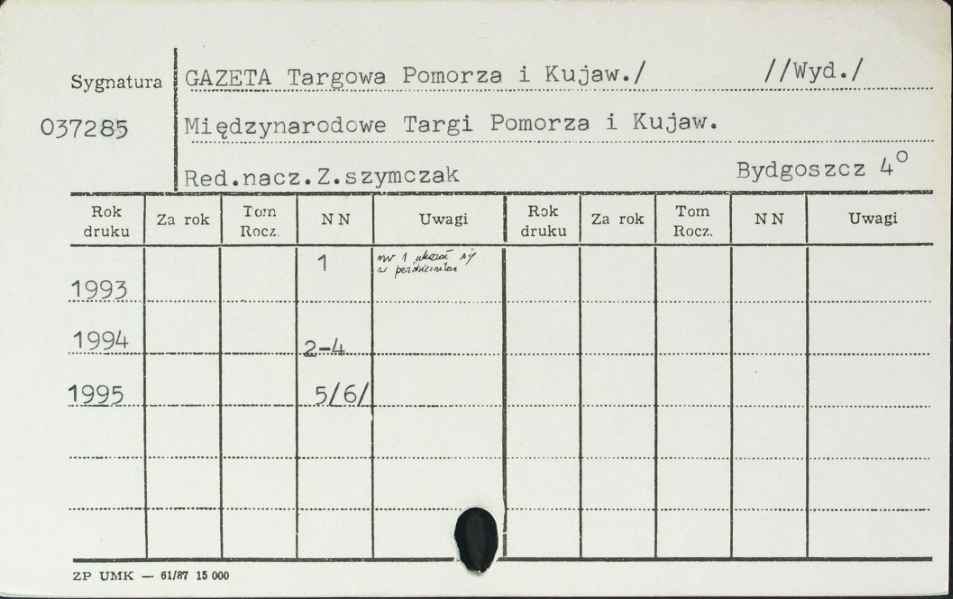 Sygnatura GAZETA Targowa Pomorza i Kujaw./ //Wyd./
037285 Międzynarodowe Targi Pomorza i Kujaw.
Red.nacz.Z.szymczak Bydgoszcz 4°
Rok druku Za rok Tom Rocz. N N Uwagi Rok druku Za rok Tom Rocz. N N Uwagi
1993 1 nr 1 ukazał się w październiku
1994 2-4
1995 5/6/
ZP UMK — 61/87 15 000